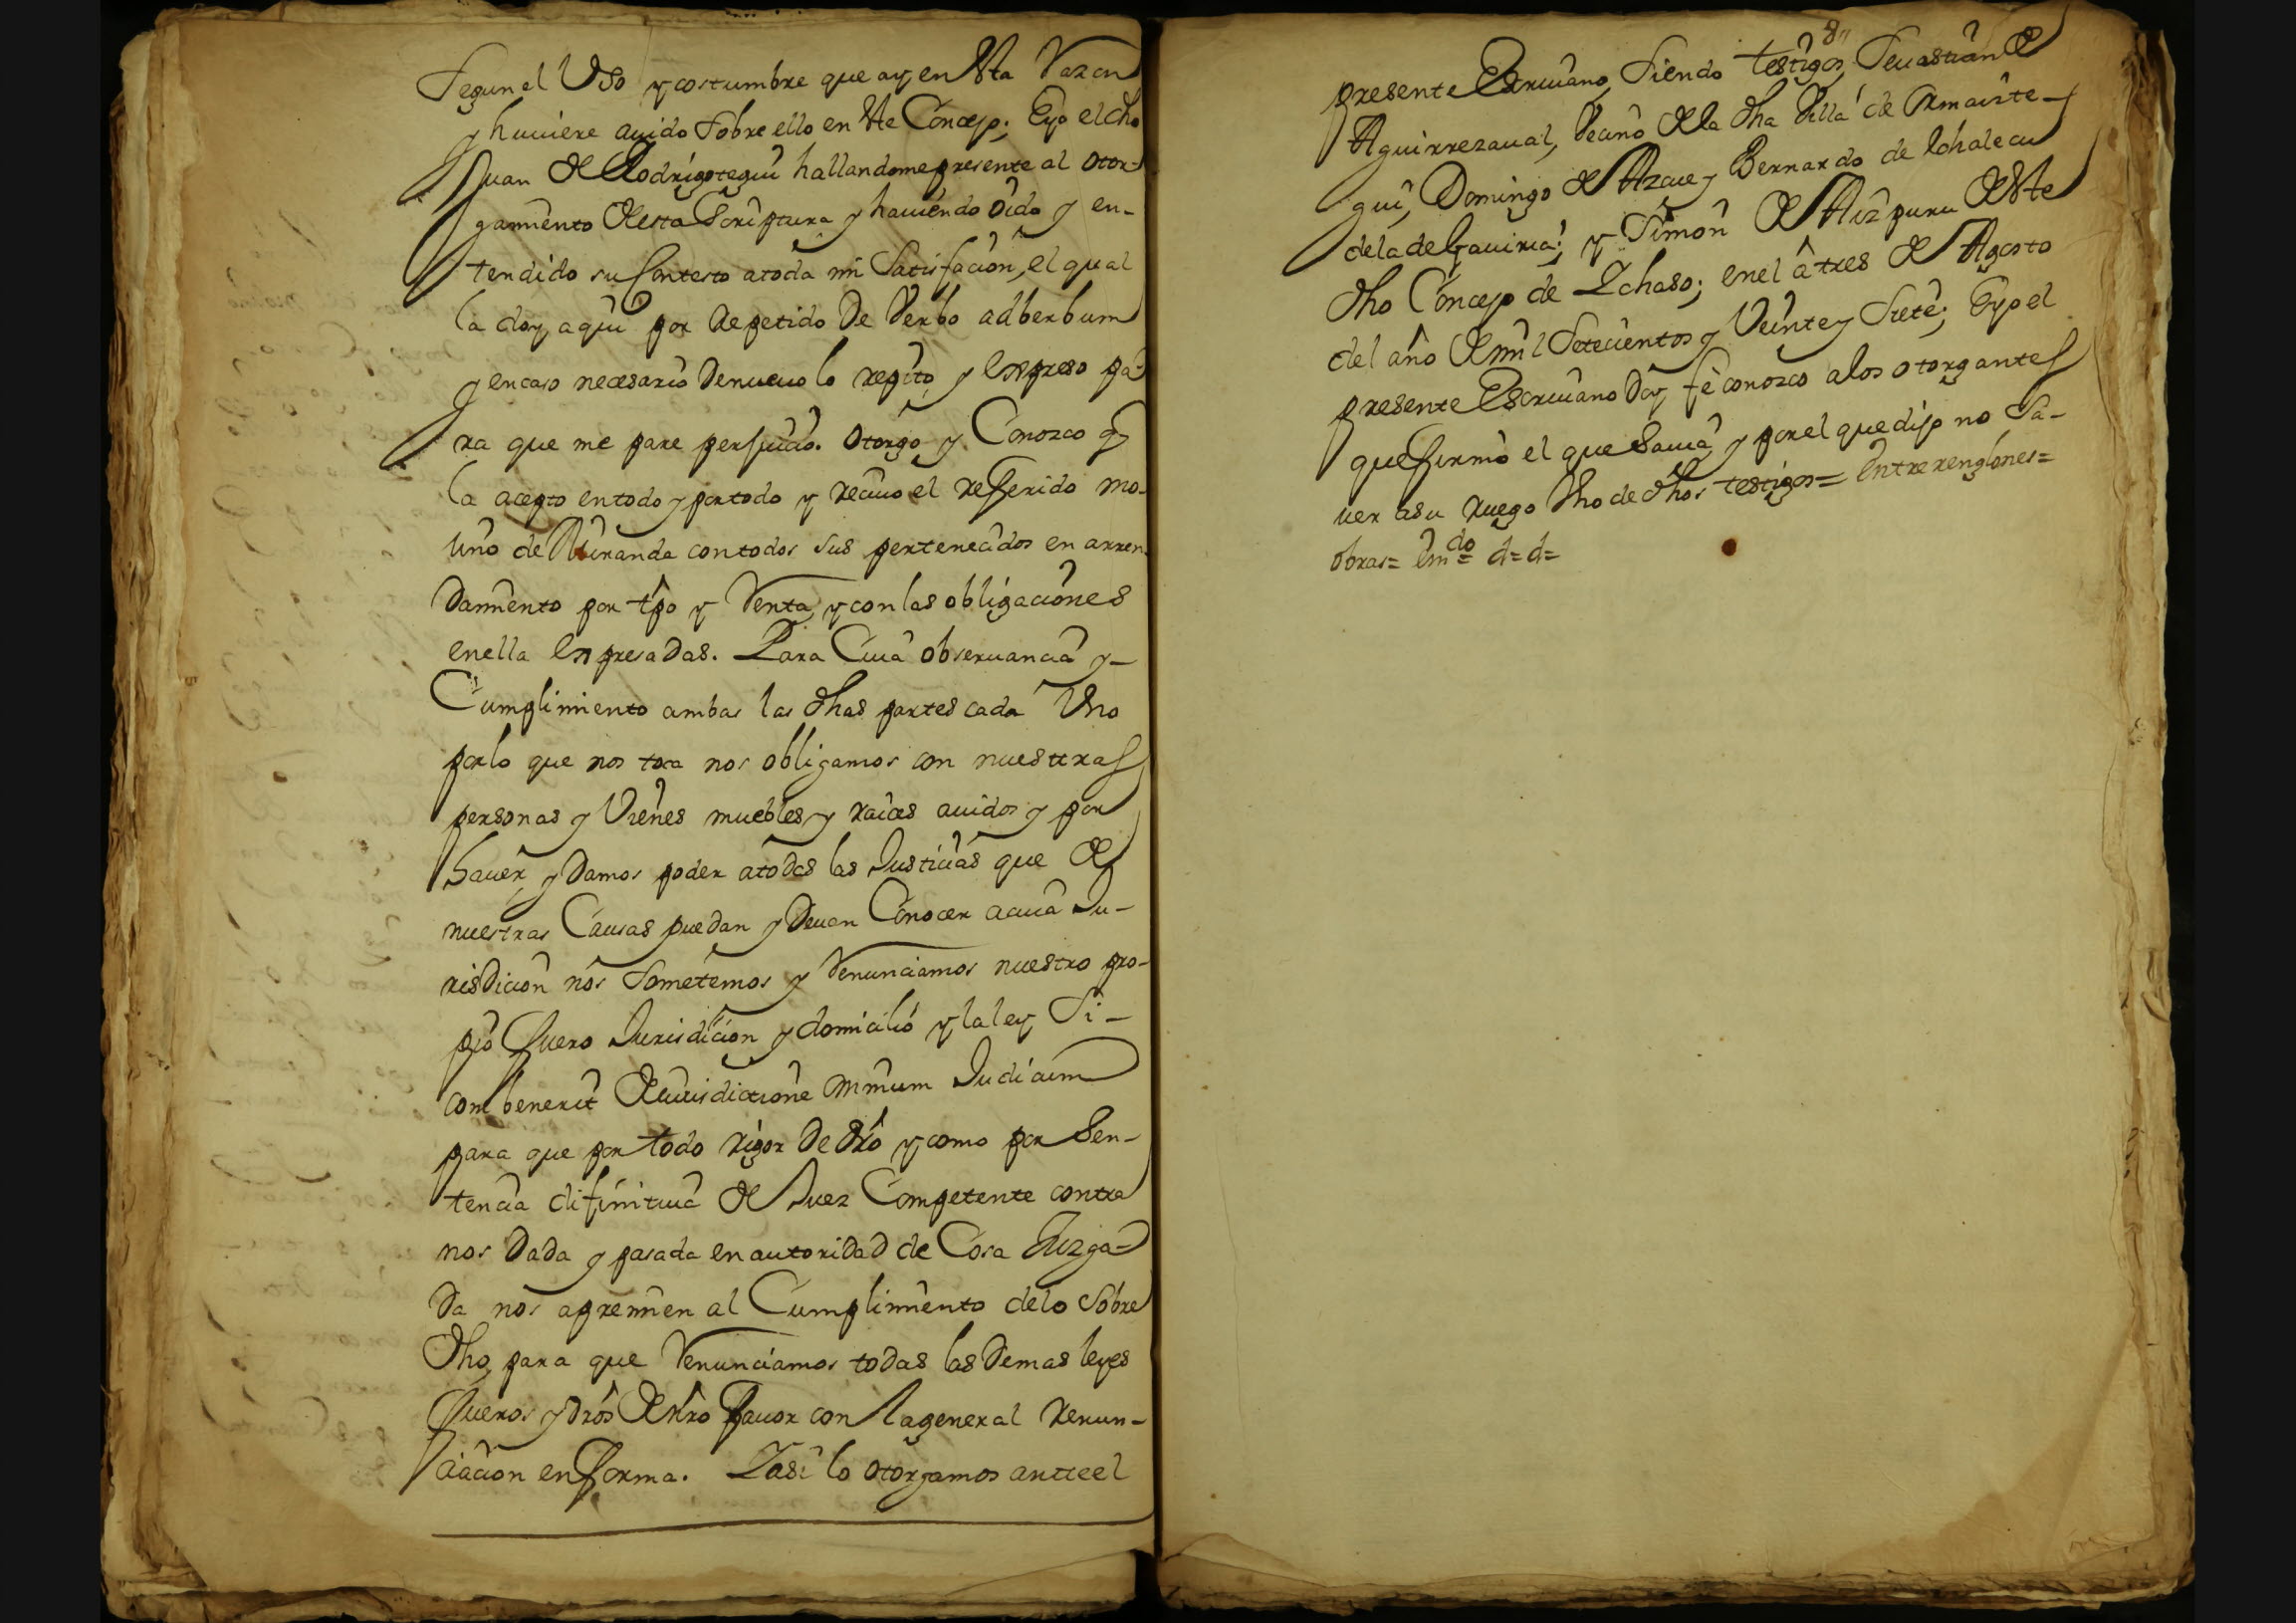 Segun el Uso y costumbre que ay en esta razon
y huuiere auido sobre ello en este Concejo; Eyo el dho
Juan de Rodrigotegui hallandome presente al otor-
gamiento de esta Scriptura y hauiendo oido y en-
tendido su Contesto atoda mi Satisfacion, el qual
la doy aqui por Repetido De Verbo adberbum
y encaso necesario Denueuo lo repito y Expreso pa-
ra que me pare perjuicio. Otorgo y Conozco q
la acepto entodo y portodo y reciuo el referido mo-
lino de Miranda contodos sus pertenecidos en arren-
Damiento por tpo y Renta, y con las obligaciones
enella Expresadas. Para Cuia obseruancia y-
Cumplimiento ambas las dhas partes cada Uno
porlo que nos toca nos obligamos con nuestras
personas y Vienes muebles y raices auidos y por
hauer, y Damos poder atodas las Justicias que de
nuestras Causas puedan y Deuan Conocer acuia Ju-
risdicion nos sometemos y Renunciamos nuestro pro-
pio fuero Jurisdicion y domicilio y laley Si-
combenerit de Jurisdictione omnium Judicum
para que por todo rigor De dro y como por Sen-
tencia difinitiua de Juez Competente contra
nos Dada y pasada en autoridad de Cosa Juzga-
Da nos apremien al Cumplimiento delo Sobre
dho, para que Renunciamos todas las Demas leyes
fueros y dros de nro fauor con la general renun-
ciacion en forma. Y asi lo otorgamos antteel
8
presente Escriuano, Siendo testigos, Seuastian de
Aguirrezaual, Vecino de la dha Villa de Ormaizte-
gui, Domingo de Azcue y Bernardo de Ichalecu
dela de Gauiria; y Simon de Aizpuru de este
dho Concejo de Ichaso; enel a tres de Agosto
del año de mil Setecientos y Veinte y Siete; Eyo el
presente Escriuano Doy fe conozco alos otorgantes
que firmo el que Sauia, y por el que dijo no Sa-
uer asu ruego Vno de dhos testigos = Entrerenglones =
obras = Em<sup>do</sup> = d = d =